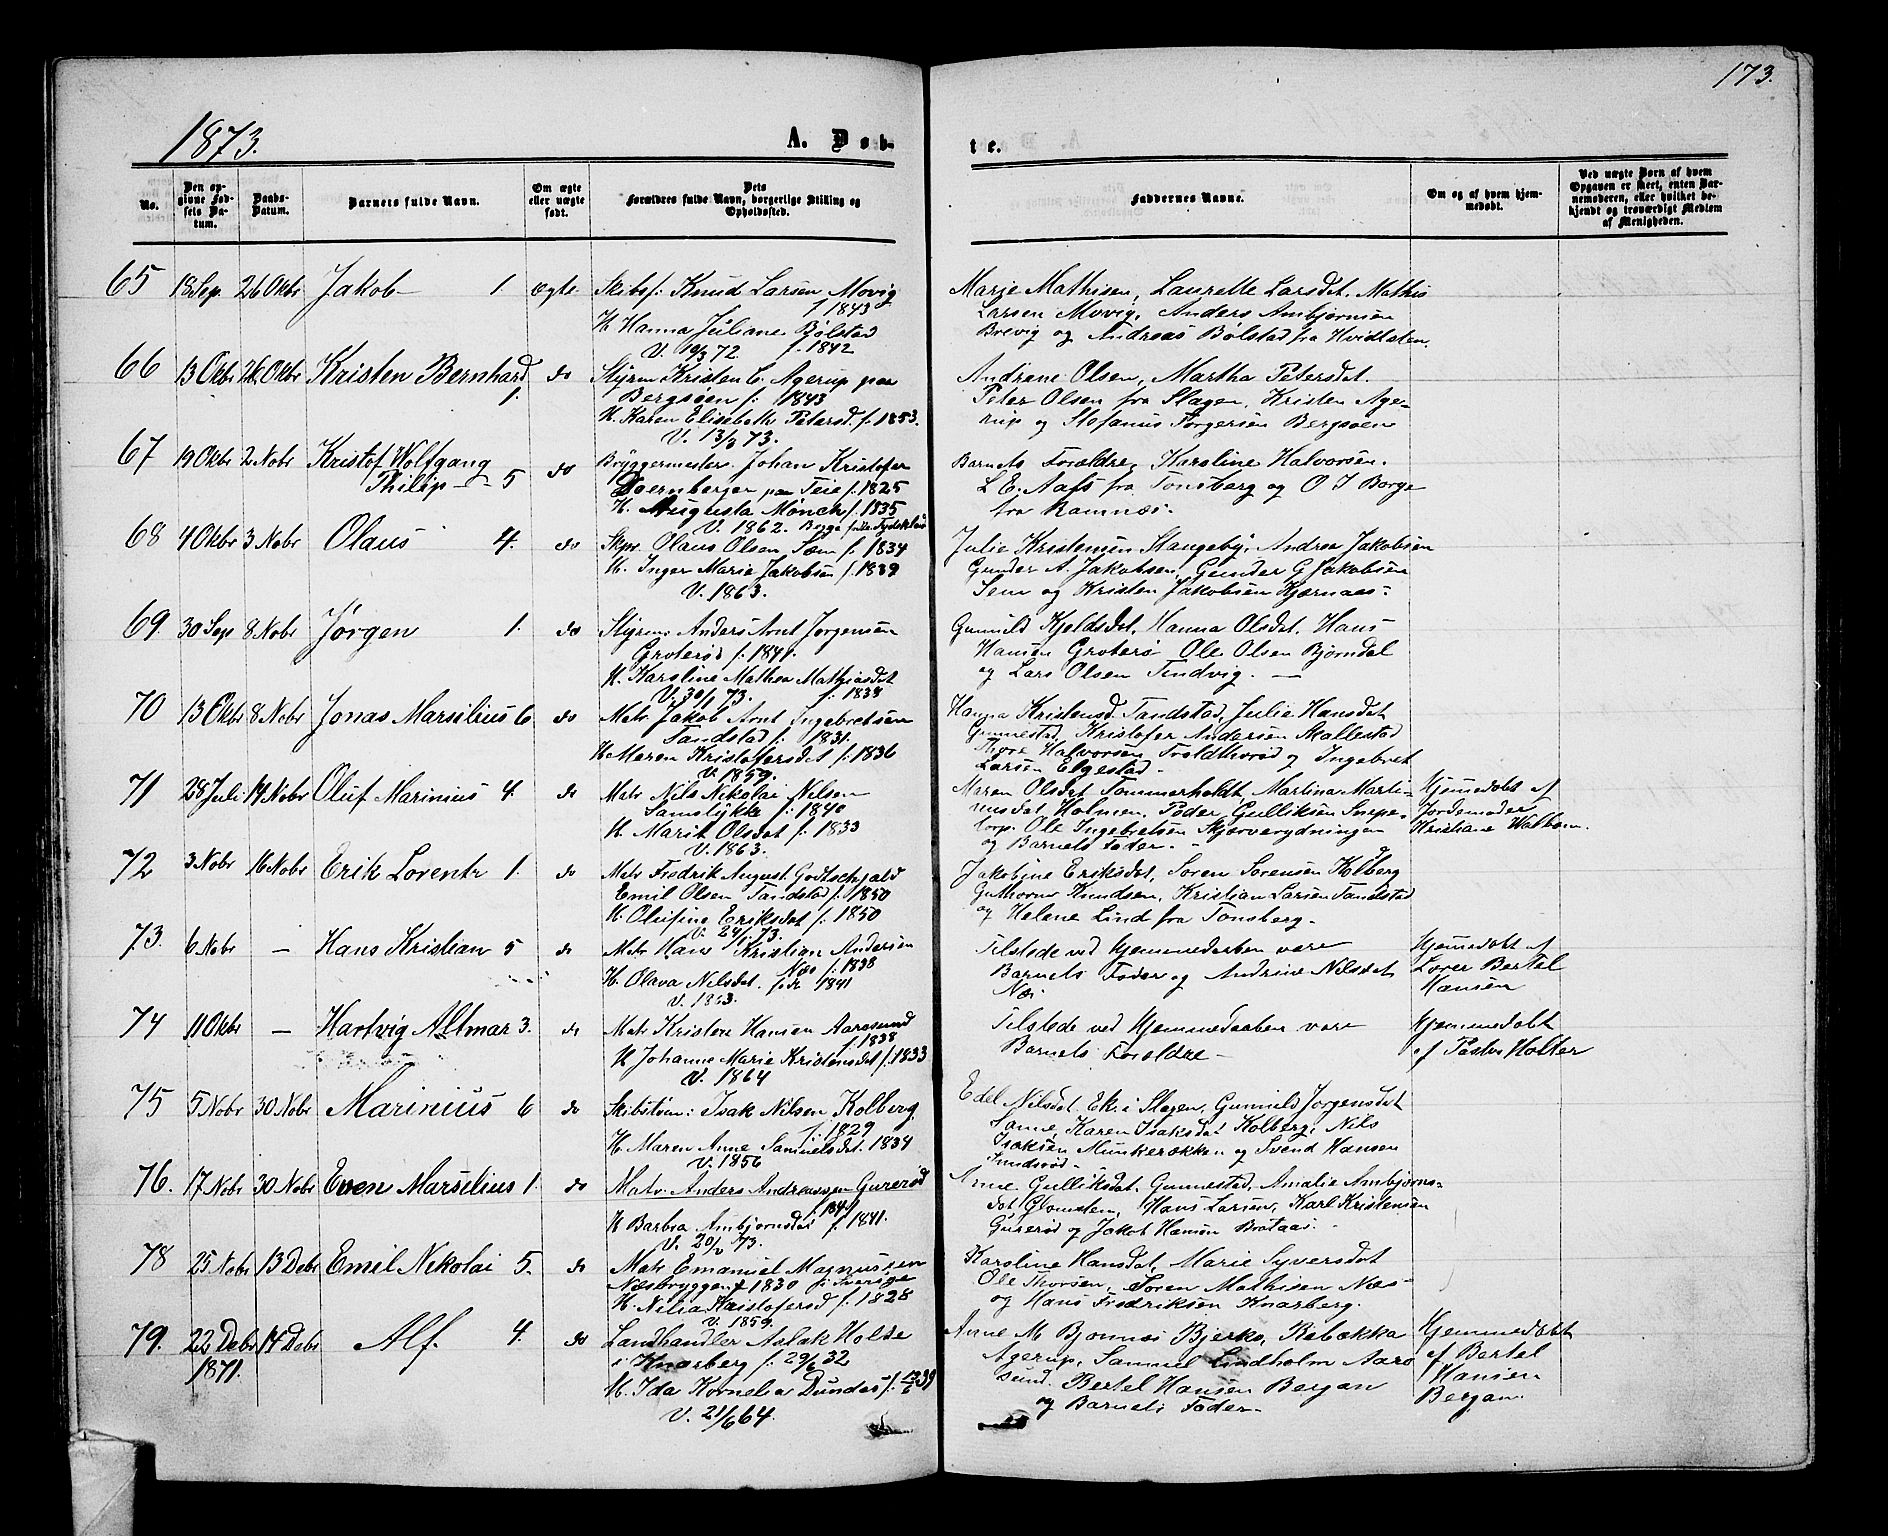 173.
1873.
A. Døb-
te.
No.
Den opgivne Fødsels Datum.
Daabs-Datum.
Barnets fulde Navn.
Om ægte eller uægte født.
Dets Forældres fulde Navn, borgerlige Stilling og Opholdssted.
Faddernes Navne.
Om og af hvem hjemmedøbt.
Ved uægte Børn af hvem Opgaven er skeet, enten Barnemoderen, eller hvilket bekjendt og troværdigt Medlem af Menigheden.
65 18 Sep. 26 Okbr Jakob 1. ægte Skibsf: Knud Larsen Movig
f 1843
H. Hanna Juliane Bølstad
V. 19/3 72. f. 1842
Marje Mathisen, Laurelle Larsdat. Mathis
Larsen Movig, Anders Ambjørnsen
Brevig og Andreas Bølstad fra Hvidtsten.
66 13 Okbr 26 Okbr Kristen Bernhard 1. do Styrm Kristen C. Agerup paa
Bergsøen f. 1843
H. Karen Elisabeth Petersd. f. 1853.
V. 13/3 73.
Andrine Olsen, Martha Petersdat.
Peter Olsen fra Slagen, Kristen Age-
rup og Stefanus Torgersen Bergsøen
67 19 Okbr 2 Nobr Kristof Wolfgang
Philip 5 do Bryggermester. Johan Kristofer
Doernberger paa Teie f. 1825
H. Augusta Mönch f. 1835
V. 1862. Begge f. i Tydskland
Barnets Forældre, Karoline Halvorsen.
L. E. Aass fra Tønsberg og O J Borge
fra Ramnæs.
68 4 Okbr 3 Nobr Olaus 4. do Skpr. Olaus Olsen Sem f. 1834
H. Inger Marie Jakobsen f. 1839
V. 1863.
Julie Kristensen Stangeby, Andrea Jakobsen
Gunder A Jakobsen, Gunder G Jakobsen
Sem og Kristen Jakobsen Kjærnaes.
69. 30 Sep 8 Nobr Jørgen 1. do Styrm: Anders Arnt Jørgensen
Groterød f. 1841.
H. Karoline Mathea Mathiasdat
V. 30/1 73. f. 1838
Gunnild Kjeldsdat, Hanna Olsdat. Hans
Hansen Groterø Ole Olsen Bjørndal
og Lars Olsen Tindvig.
70 13 Okbr 8 Nobr Jonas Marsilius 6 do Matr Jakob Arnt Ingebretsen
Tandstad f. 1831.
H. Maren Kristofersdat f. 1836
V. 1859.
Hanna Kristensd. Tandstad, Julie Hansdat
Gunnestad, Kristofer Andersen Skallestad
Thore Halvorsen Troldthorød og Ingebret
Larsen Elgestad.
71 28 Juli 14 Nobr Oluf Marinius 4. do Matr Nils Nikolai Nilsen
Samslykke f. 1840
H. Marit Olsdat f. 1833
V. 1863.
Maren Olsdat Sommerholdt, Martina Marti-
nusdat Holmen, Peder Gulliksen Snipe-
torp. Ole Ingebretsen Skjærverydningen
og Barnets Fader.
Hjemmedøbt af
Jordemoder
Kristiane Walbom.
72 3 Nobr 16 Nobr Erik Lorentz 1. do Matr Fredrik August Godtschjald
Emil Olsen Tandstad f. 1850
H. Olufine Eriksdat f. 1850
V. 24/1 73.
Jakobine Eriksdat, Søren Sørensen Kolberg
Guthorm Knudsen, Kristian Larsen Tandstad
og Helene Lind fra Tønsberg.
73. 6 Nobr — Hans Kristian 5 do Matr Hans Kristian Andersen
Næs f. 1838
H. Olava Nilsdat. født 1841
V. 1863.
Tilstede ved Hjemmedaaben vare
Barnets Fader og Andrine Nilsdat
Næs
Hjemmedøbt af
Lærer Bertel
Hansen
74 11 Okbr — Hartvig Altmar 3. do Matr Kristen Hansen Aarøsund
f. 1838
H Johanne Marie Kristensdat f. 1833
V. 1864
Tilstede ved Hjemmedaaben vare
Barnets Forældre
Hjemmedøbt
af Pastor Holter
75 5 Nobr 30 Nobr Marinius 6 do Skibstøm: Isak Nilsen Kolberg
f. 1829
H. Maren Anne Samuelsdat. 1834
V. 1856
Edel Nilsdat Ek i Slagen, Gunnild Jørgensdat
Sanne, Karen Isaksdat Kolberg, Nils
Isaksen Munkerøkken og Svend Hansen
Sundsrød
76. 17 Nobr 30 Nobr Even Marsilius 1. do Matr. Anders Andreassen Gurerød
f. 1841
H Barbra Ambjørnsdat f. 1841.
V. 20/2 73.
Anne Gulliksdat. Gunnestad, Amalie Ambjørns-
dat Glomsten, Hans Larsen, Karl Kristensen
Gurerød og Jakob Hansen Brataas.
78 25 Nobr 13 Debr Emil Nikolai 5. do Matr Emanuel Magnussen
Næsbryggen f 1830 f: i Sverige
H. Nilia Kristofersd f. 1828
V. 1859.
Karoline Hansdat, Marie Syversdat
Ole Thorsen, Søren Mathisen Næs
og Hans Fredriksen Knarberg.
79. 22 Debr
1871. 14 Debr Alf. 4. do Landhandler Aslak Holse
i Knarberg f. 29/6 32
H. Ida Kornelia Dundas f. 12/6 39
V. 21/6 64.
Anne M Bjonnes Bjerkø, Rebekka
Agerup, Samuel Lindholm Aarø
sund. Bertel Hansen Bergan
og Barnets Fader
Hjemmedøbt
af Bertel
Hansen
Bergan.